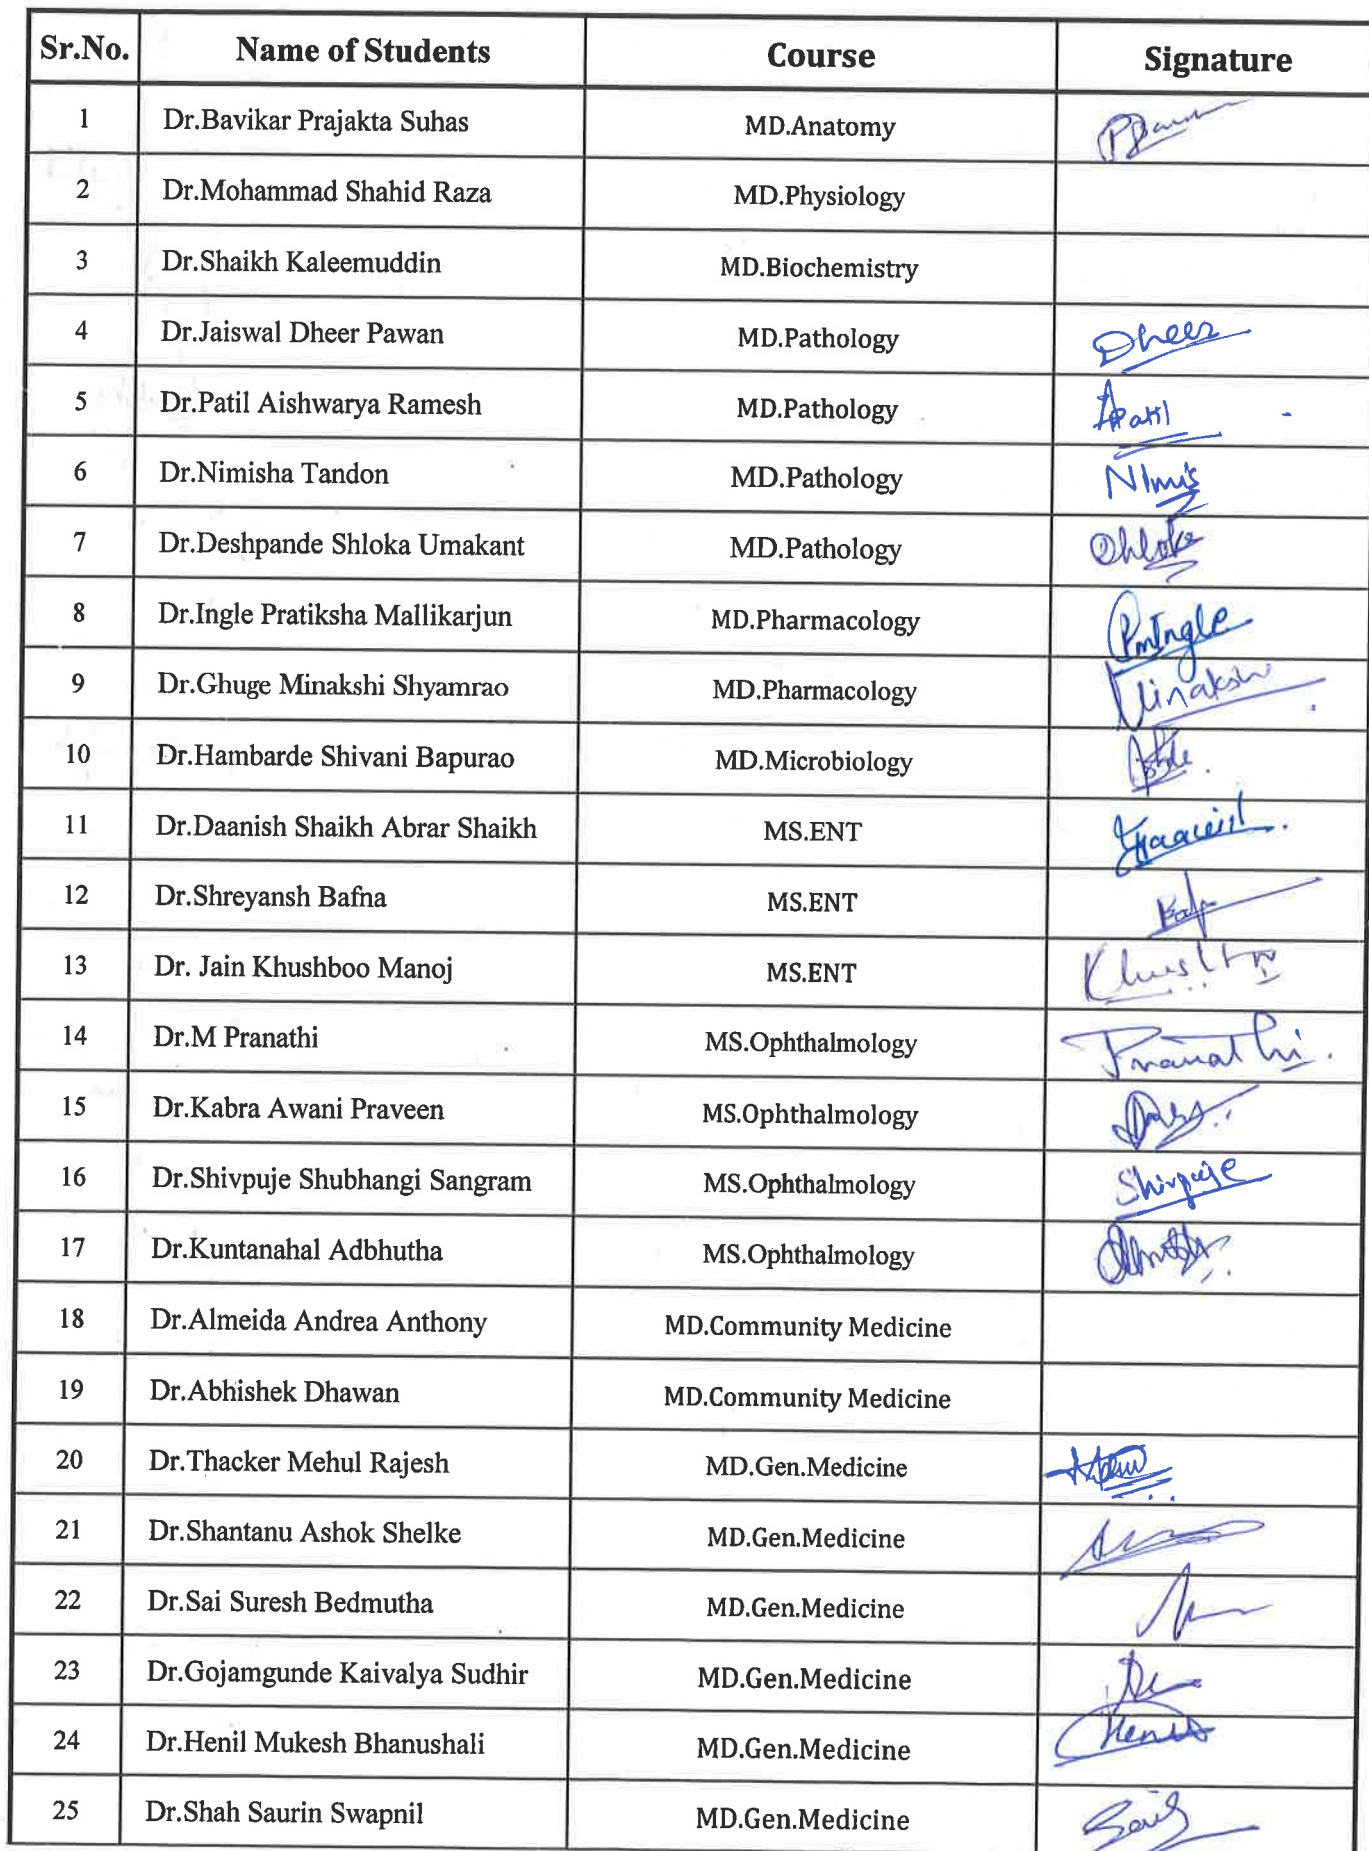 Sr.No. Name of Students Course Signature
1 Dr.Bavikar Prajakta Suhas MD.Anatomy
2 Dr.Mohammad Shahid Raza MD.Physiology
3 Dr.Shaikh Kaleemuddin MD.Biochemistry
4 Dr.Jaiswal Dheer Pawan MD.Pathology Dheer
5 Dr.Patil Aishwarya Ramesh MD.Pathology APatil
6 Dr.Nimisha Tandon MD.Pathology Nimis
7 Dr.Deshpande Shloka Umakant MD.Pathology
8 Dr.Ingle Pratiksha Mallikarjun MD.Pharmacology PmIngle
9 Dr.Ghuge Minakshi Shyamrao MD.Pharmacology Minakshi
10 Dr.Hambarde Shivani Bapurao MD.Microbiology
11 Dr.Daanish Shaikh Abrar Shaikh MS.ENT
12 Dr.Shreyansh Bafna MS.ENT
13 Dr. Jain Khushboo Manoj MS.ENT
14 Dr.M Pranathi MS.Ophthalmology Pranathi
15 Dr.Kabra Awani Praveen MS.Ophthalmology
16 Dr.Shivpuje Shubhangi Sangram MS.Ophthalmology Shivpuje
17 Dr.Kuntanahal Adbhutha MS.Ophthalmology
18 Dr.Almeida Andrea Anthony MD.Community Medicine
19 Dr.Abhishek Dhawan MD.Community Medicine
20 Dr.Thacker Mehul Rajesh MD.Gen.Medicine
21 Dr.Shantanu Ashok Shelke MD.Gen.Medicine
22 Dr.Sai Suresh Bedmutha MD.Gen.Medicine
23 Dr.Gojamgunde Kaivalya Sudhir MD.Gen.Medicine
24 Dr.Henil Mukesh Bhanushali MD.Gen.Medicine
25 Dr.Shah Saurin Swapnil MD.Gen.Medicine